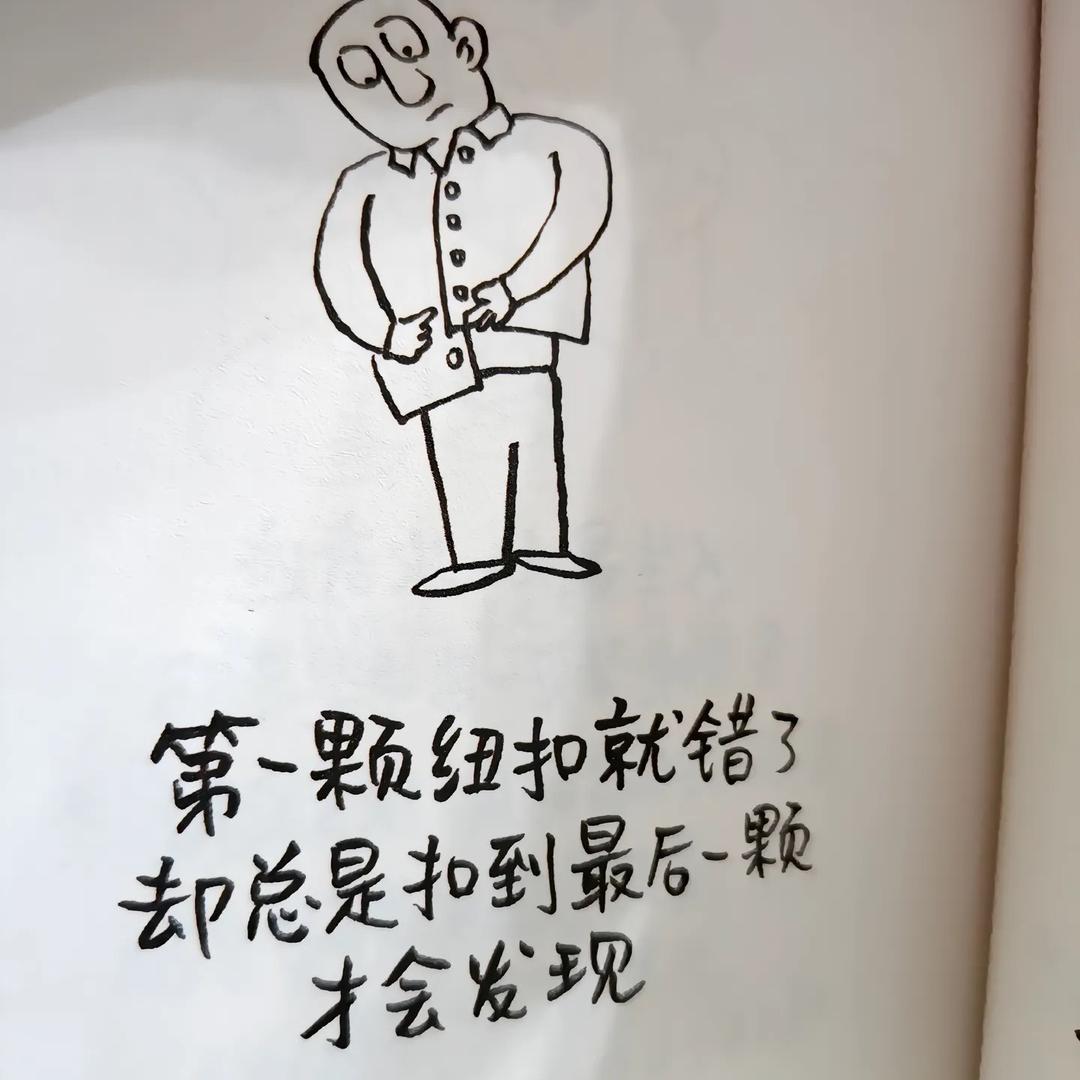 第一颗纽扣就错了
却总是扣到最后一颗
才会发现